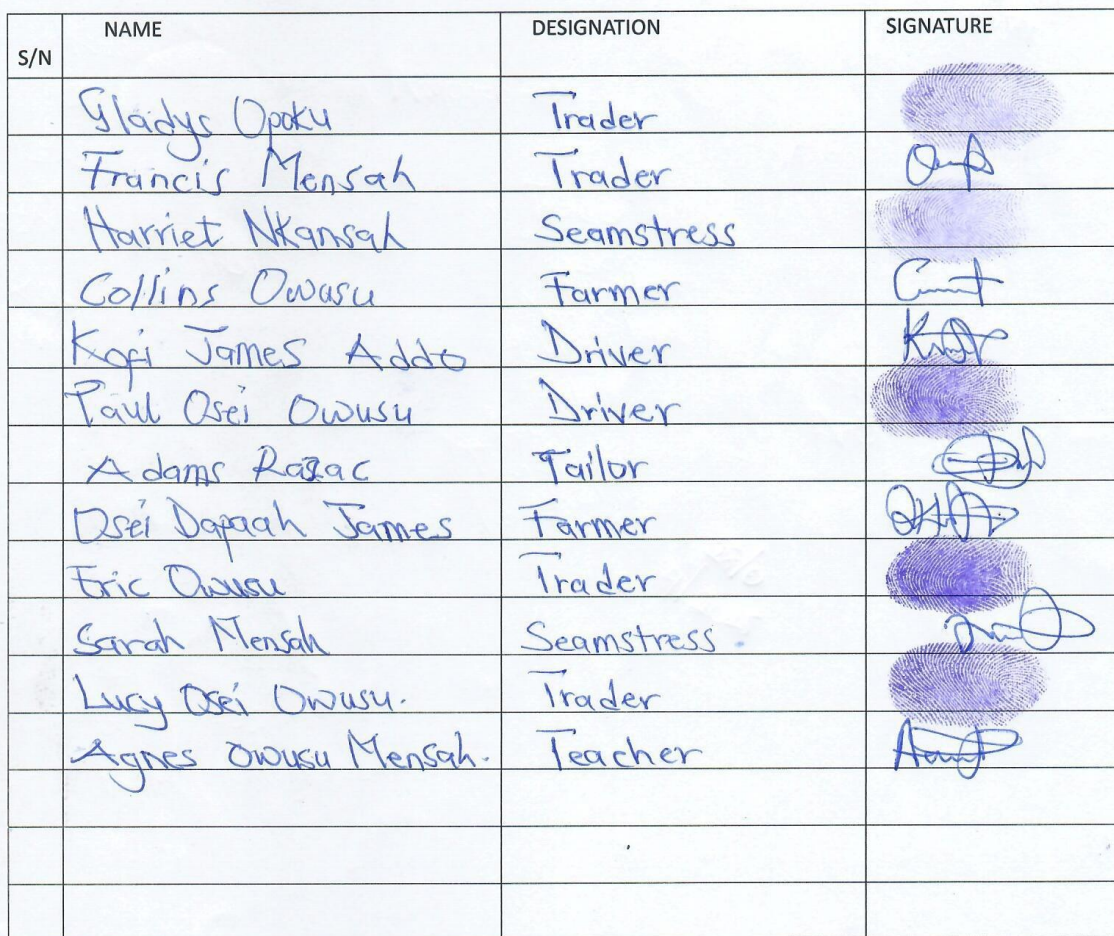 S/N NAME DESIGNATION SIGNATURE
Gladys Opoku Trader
Francis Mensah Trader
Harriet Nkansah Seamstress
Collins Owusu Farmer
Kofi James Addo Driver
Paul Osei Owusu Driver
Adams Razac Tailor
Osei Dapaah James Farmer
Eric Owusu Trader
Sarah Mensah Seamstress.
Lucy Osei Owusu. Trader
Agnes Owusu Mensah. Teacher